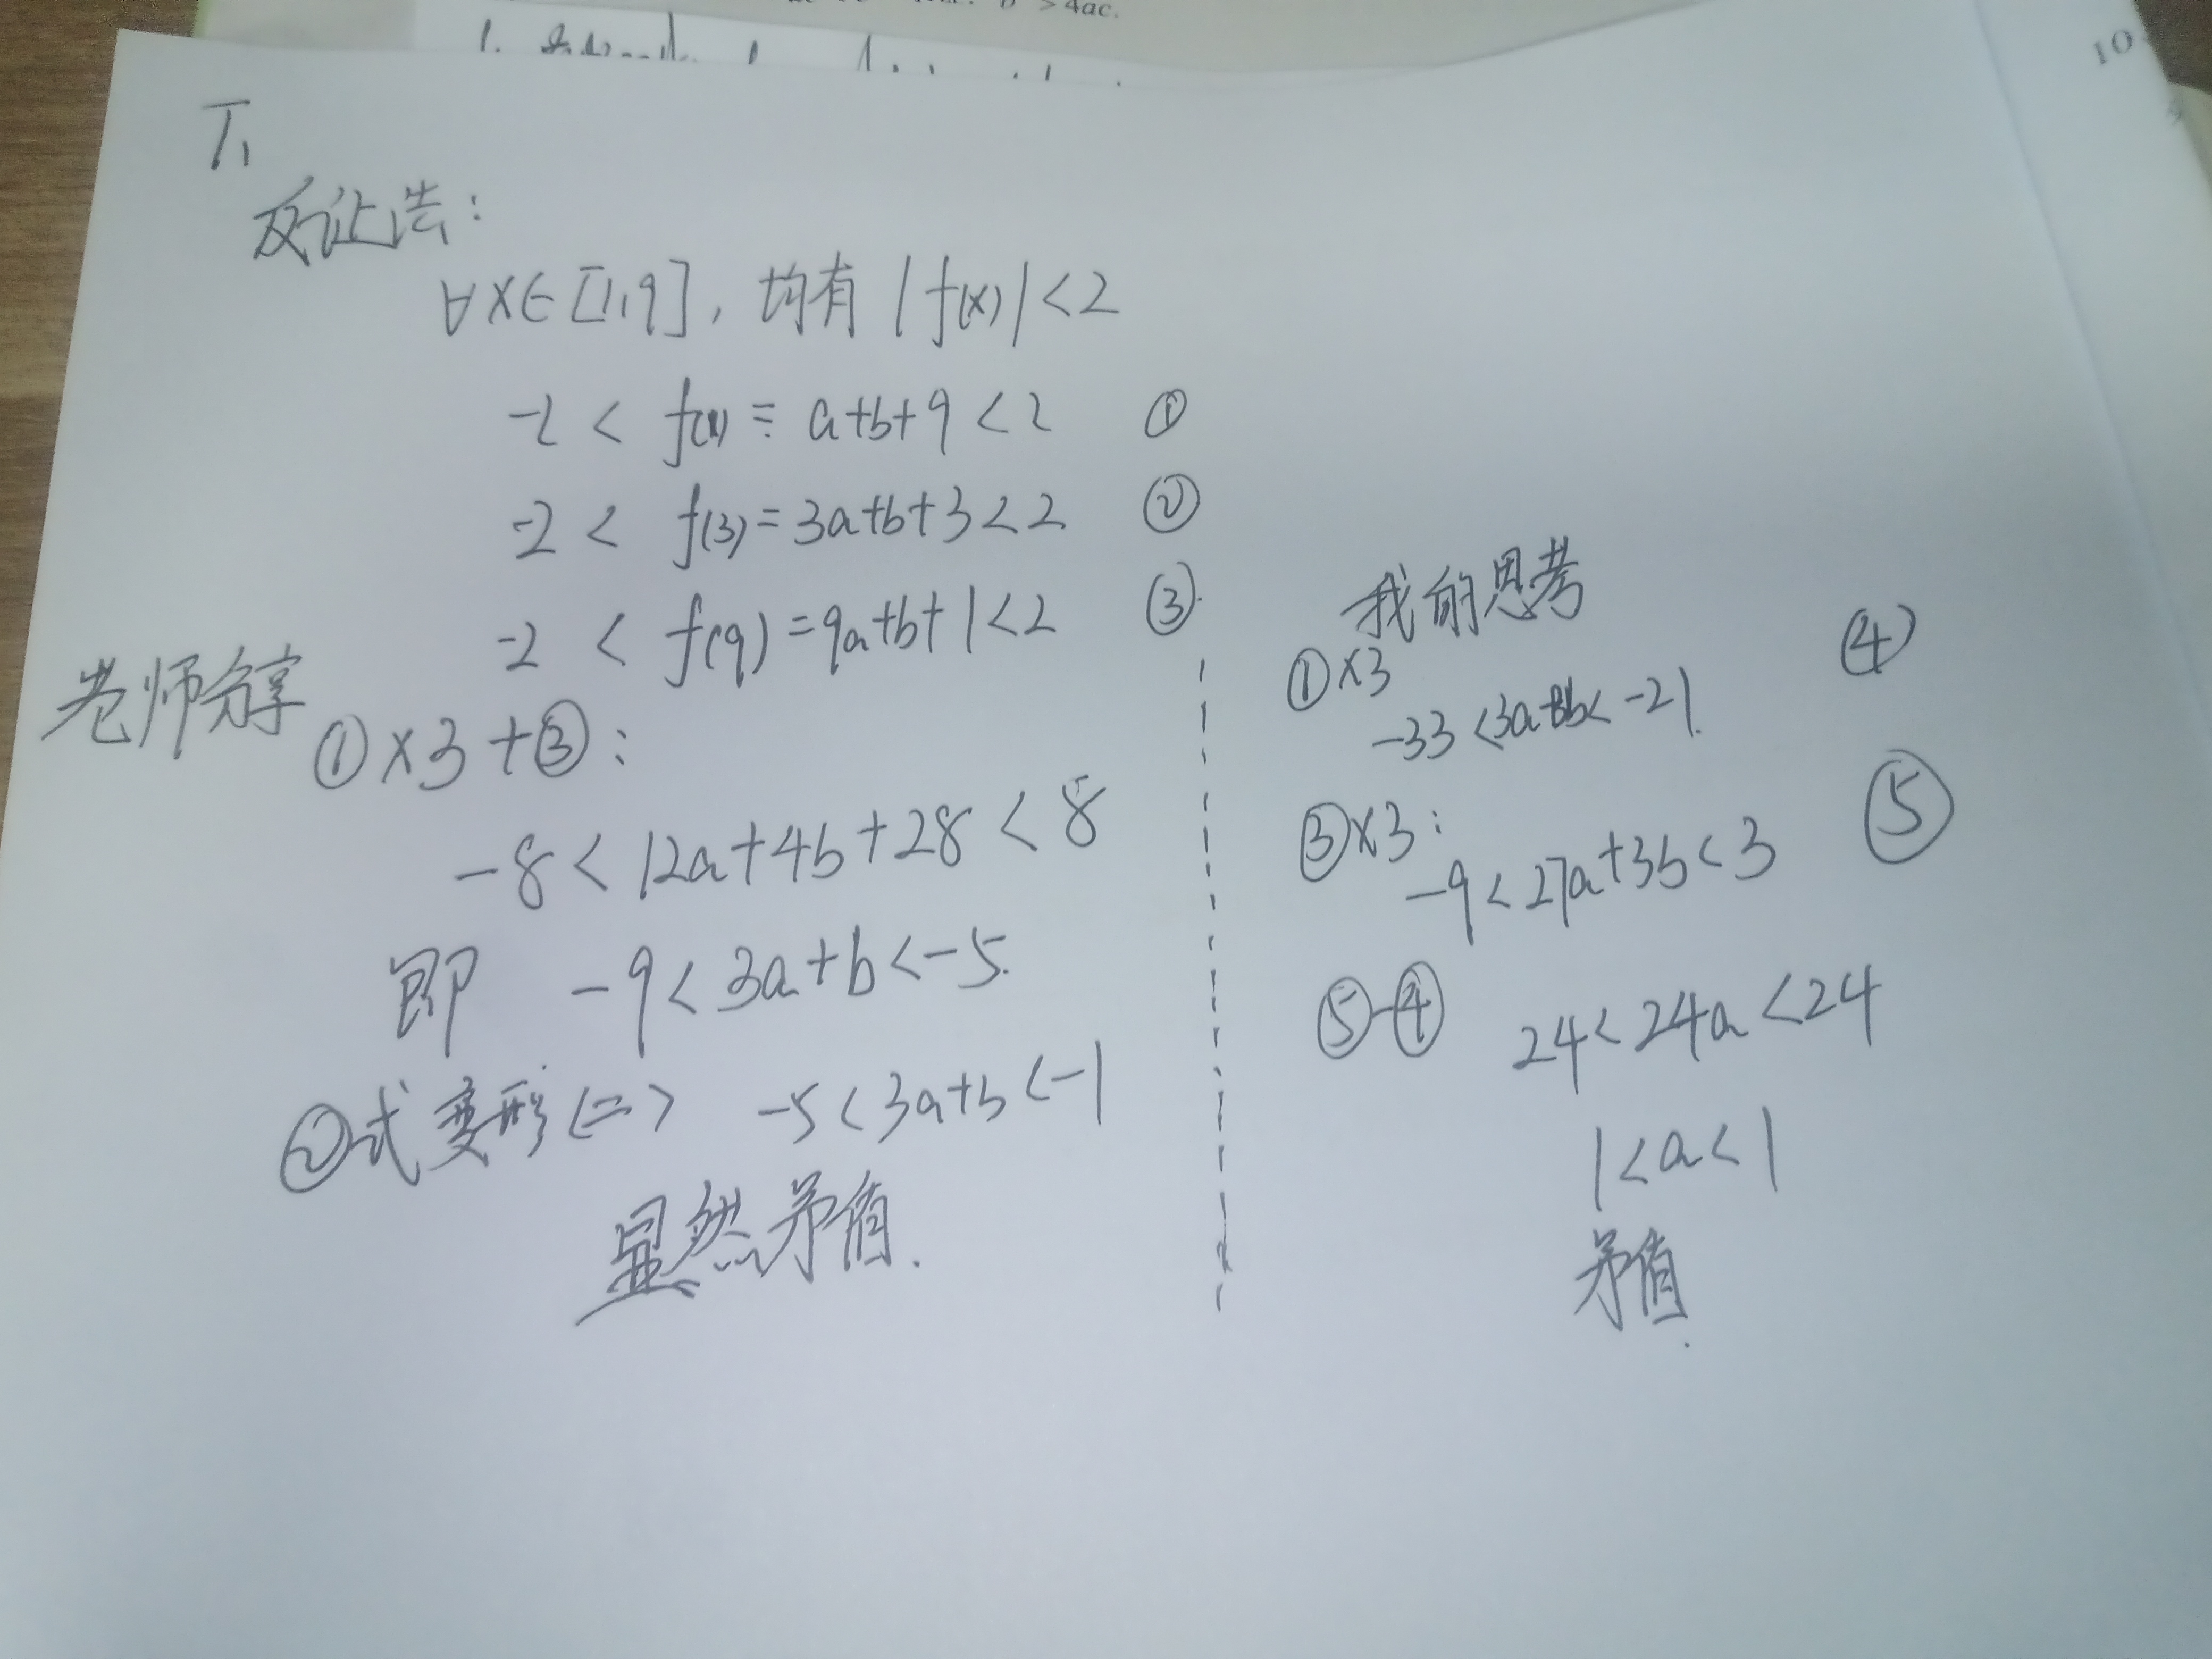 >4ac.
10
T1
反证法:
∀x∈[1,9], 均有 |f(x)|<2
-2 < f(1) = a+b+9 < 2 ①
-2 < f(3) = 3a+b+3 < 2 ②
-2 < f(9) = 9a+b+1 < 2 ③
老师分享
①×3+③:
-8 < 12a+4b+28 < 8
即 -9 < 3a+b < -5.
②式变形<=> -5<3a+b<-1
显然矛盾.
我的思考
①×3
-33<3a+3b<-21. ④
③×3:
-9<27a+3b<3 ⑤
⑤-④ 24<24a<24
1<a<1
矛盾.